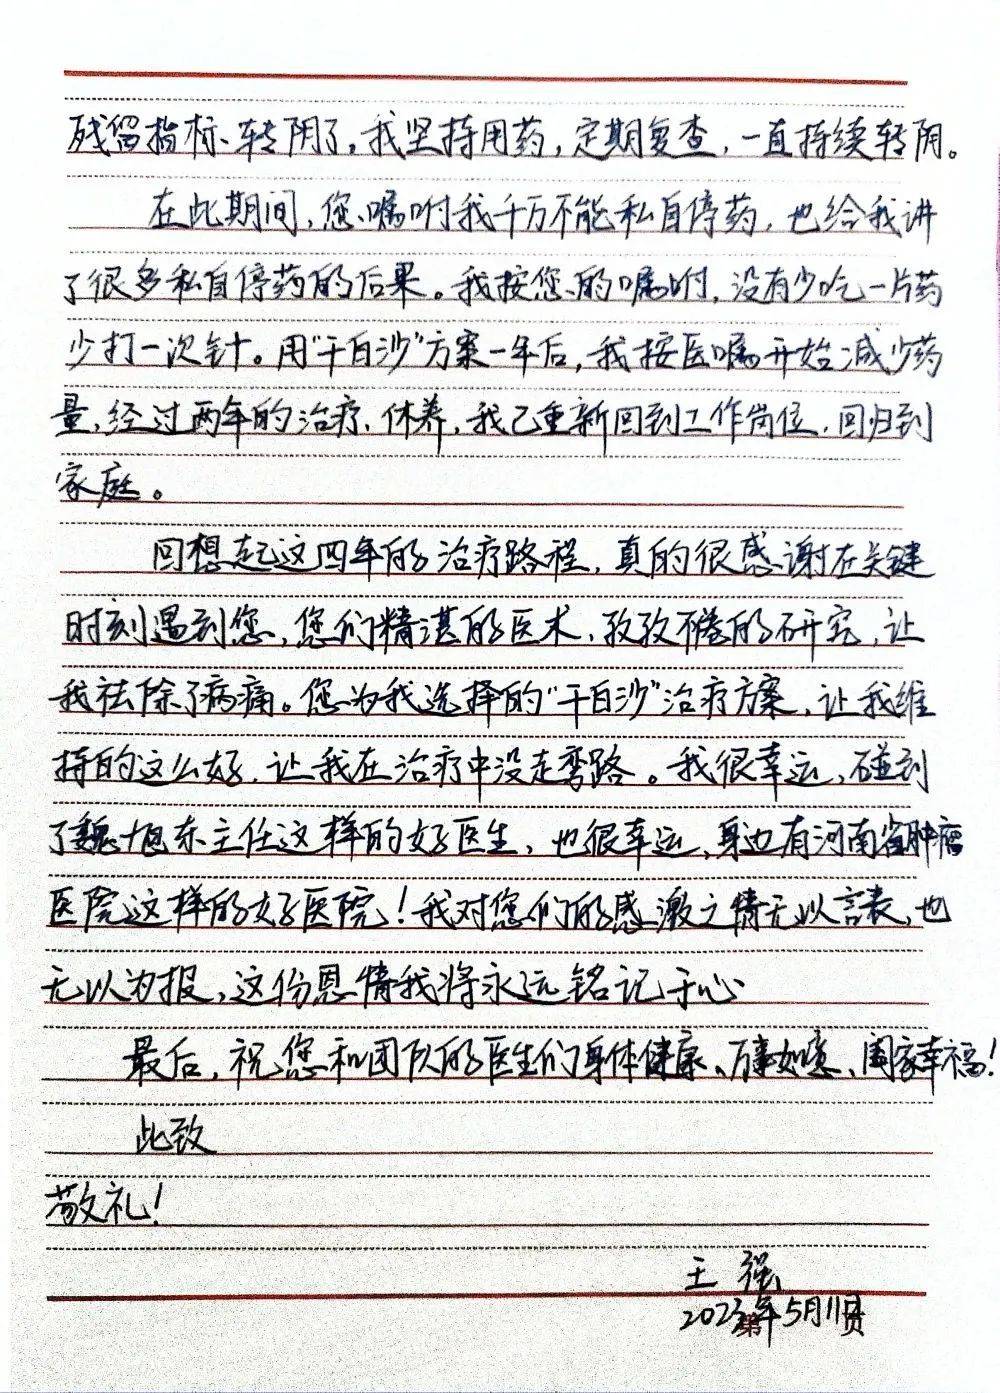 残留指标、转阴了。我坚持用药，定期复查，一直持续转阴。
在此期间，您嘱咐我千万不能私自停药，也给我讲
了很多私自停药的后果。我按您的嘱咐，没有少吃一片药
少打一次针。用“干白沙”方案一年后，我按医嘱开始减少药
量，经过两年的治疗、休养，我已重新回到工作岗位，回归到
家庭。
回想起这四年的治疗路程，真的很感谢在关键
时刻遇到您，您们精湛的医术、孜孜不倦的研究，让
我祛除了病痛。您为我选择的“干白沙”治疗方案，让我维
持的这么好，让我在治疗中没走弯路。我很幸运，碰到
了魏旭东主任这样的好医生，也很幸运，身边有河南省肿瘤
医院这样的好医院！我对您们的感激之情无以言表，也
无以为报，这份恩情我将永远铭记于心
最后，祝您和团队的医生们身体健康、万事如意、阖家幸福！
此致
敬礼！
王强
2023年5月11日
第 页